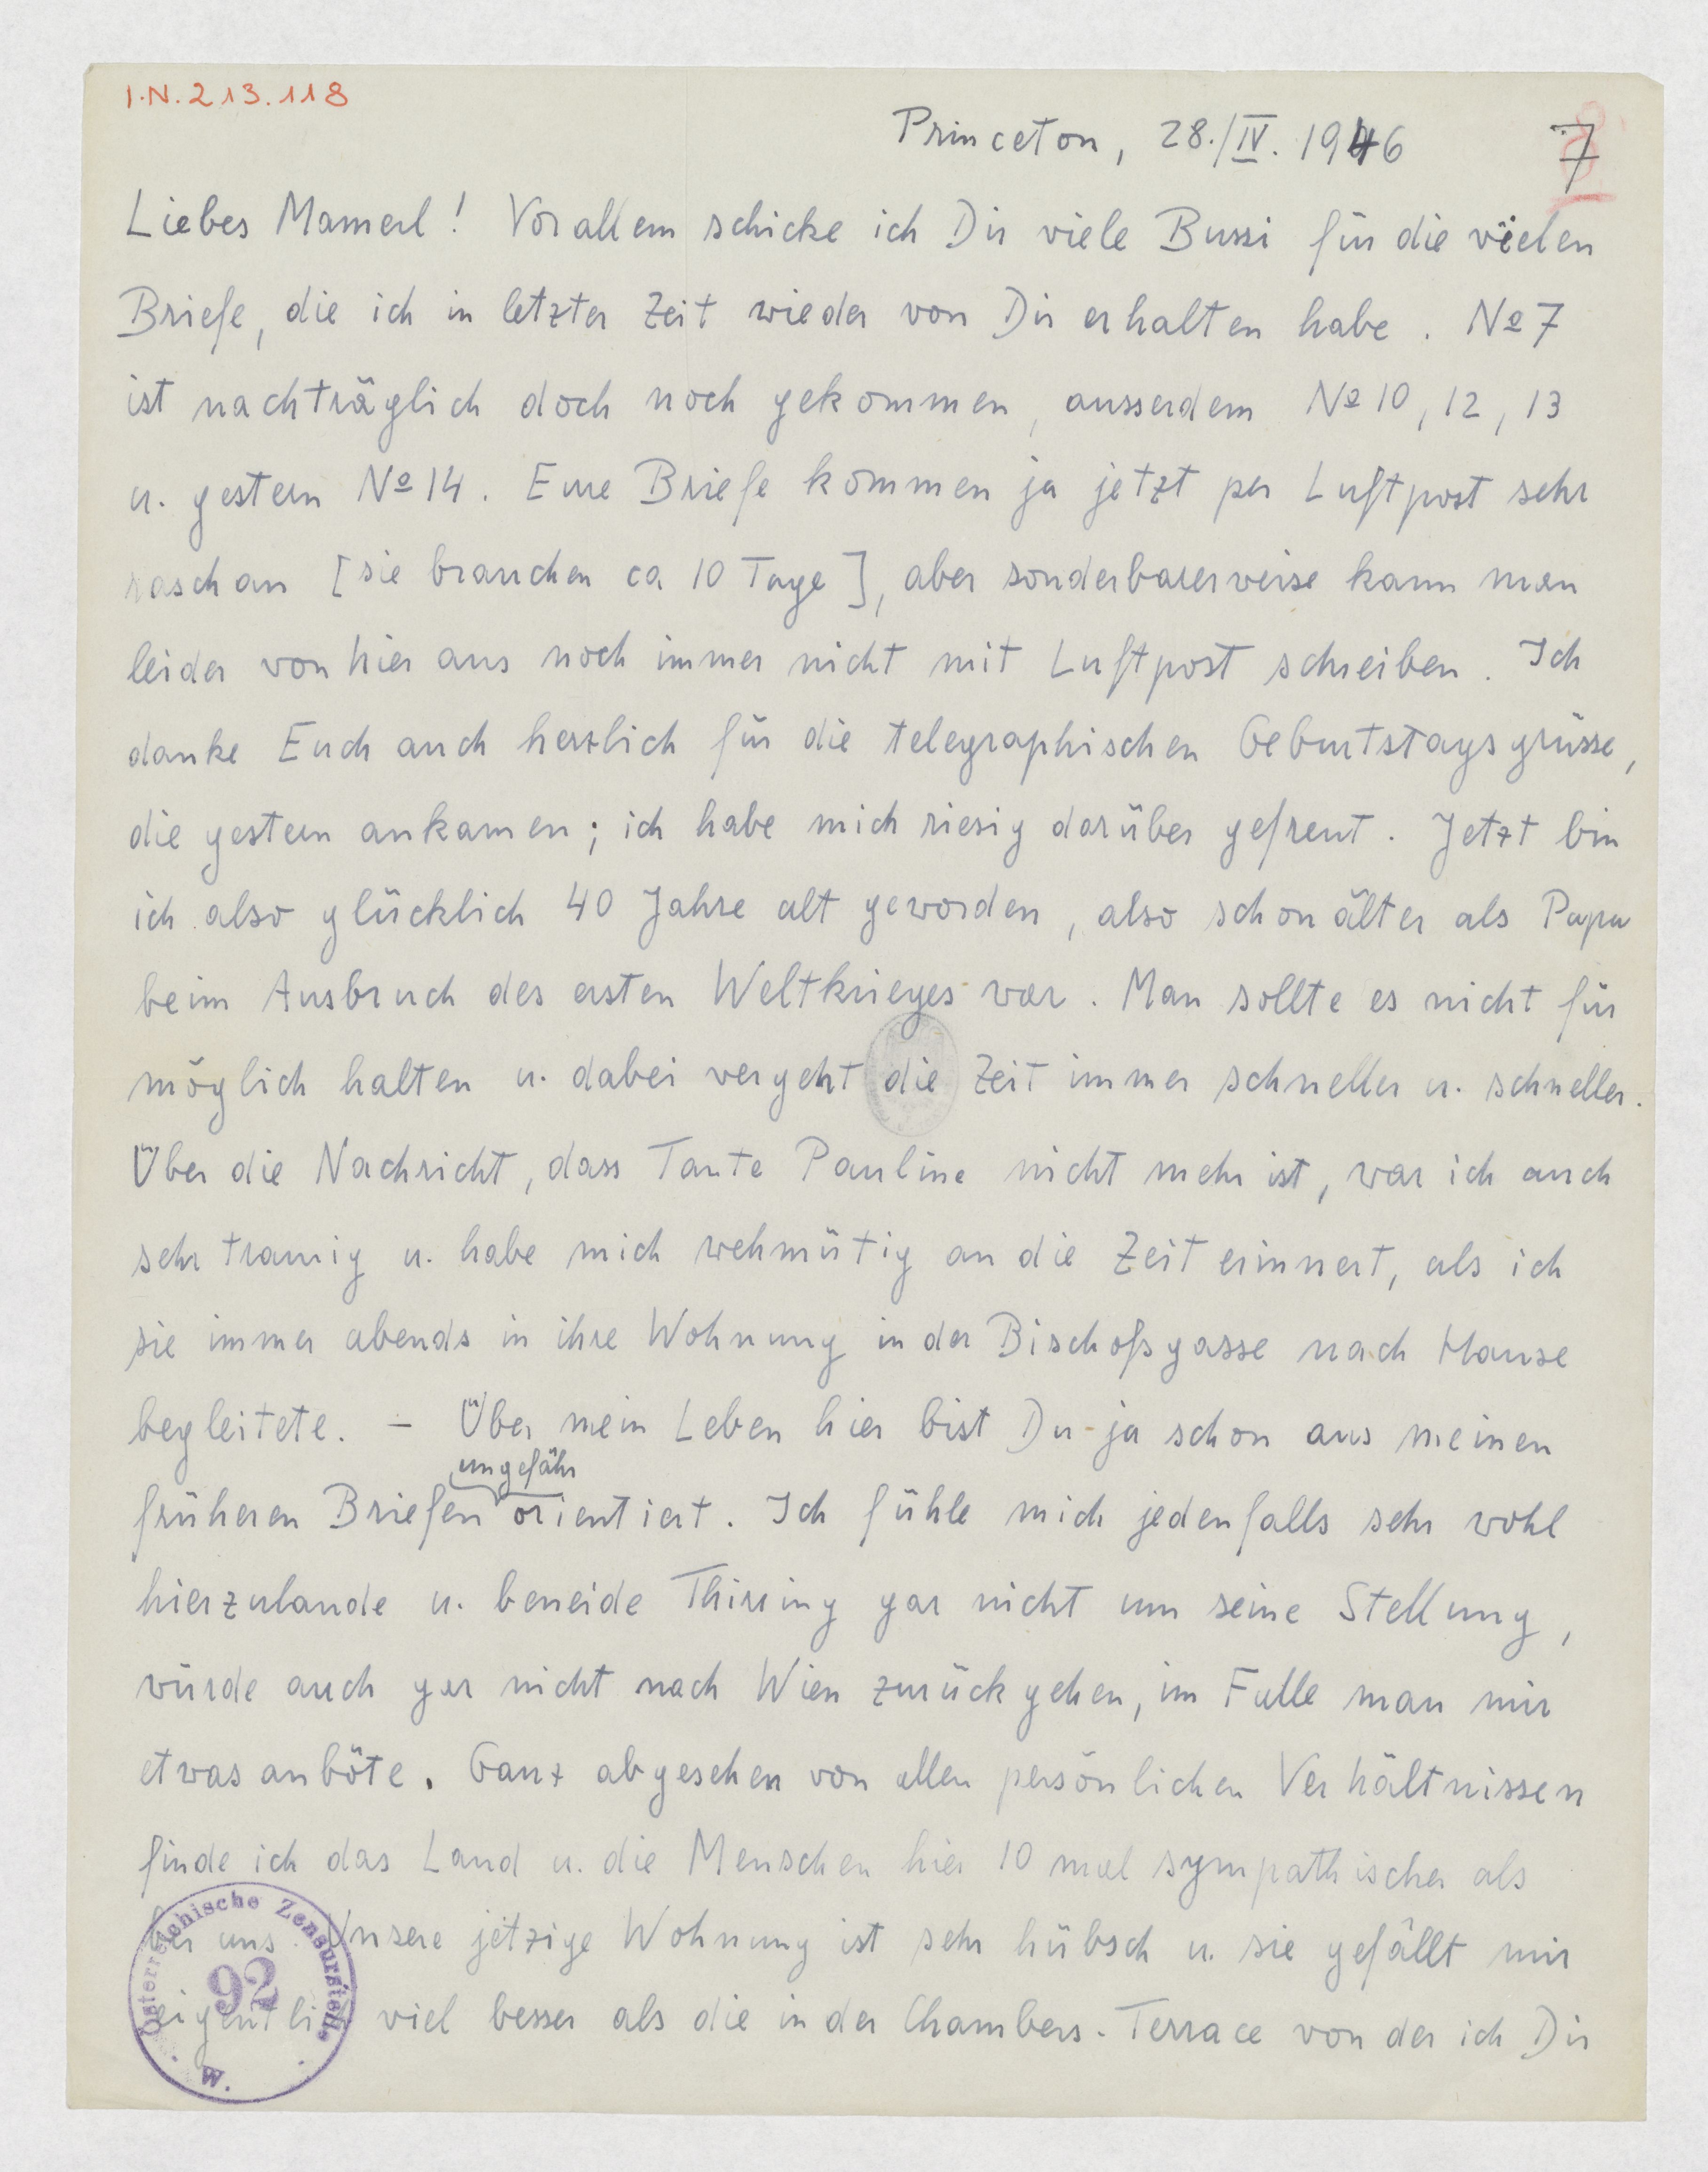 I.N. 213.118
Princeton, 28./IV. 1946
7
Liebes Mamerl! Vor allem schicke ich Dir viele Bussi für die vielen
Briefe, die ich in letzter Zeit wieder von Dir erhalten habe. No 7
ist nachträglich doch noch gekommen, ausserdem No 10, 12, 13
u. gestern No 14. Eure Briefe kommen ja jetzt per Luftpost sehr
rasch an [sie brauchen ca 10 Tage], aber sonderbarerweise kann man
leider von hier aus noch immer nicht mit Luftpost schreiben. Ich
danke Euch auch herzlich für die telegraphischen Geburtstagsgrüsse,
die gestern ankamen; ich habe mich riesig darüber gefreut. Jetzt bin
ich also glücklich 40 Jahre alt geworden, also schon älter als Papa
beim Ausbruch des ersten Weltkrieges war. Man sollte es nicht für
möglich halten u. dabei vergeht die Zeit immer schneller u. schneller.
Über die Nachricht, dass Tante Pauline nicht mehr ist, war ich auch
sehr traurig u. habe mich wehmütig an die Zeit erinnert, als ich
sie immer abends in ihre Wohnung in der Bischofsgasse nach Hause
begleitete. – Über mein Leben hier bist Du ja schon aus meinen
ungefähr
früheren Briefen orientiert. Ich fühle mich jedenfalls sehr wohl
hierzulande u. beneide Thirring gar nicht um seine Stellung,
würde auch gar nicht nach Wien zurückgehen, im Falle man mir
etwas anböte. Ganz abgesehen von allen persönlichen Verhältnissen
finde ich das Land u. die Menschen hier 10 mal sympathischer als
bei uns. Unsere jetzige Wohnung ist sehr hübsch u. sie gefällt mir
eigentlich viel besser als die in der Chambers-Terrace von der ich Dir
Österreichische Zensurstelle
92
W.